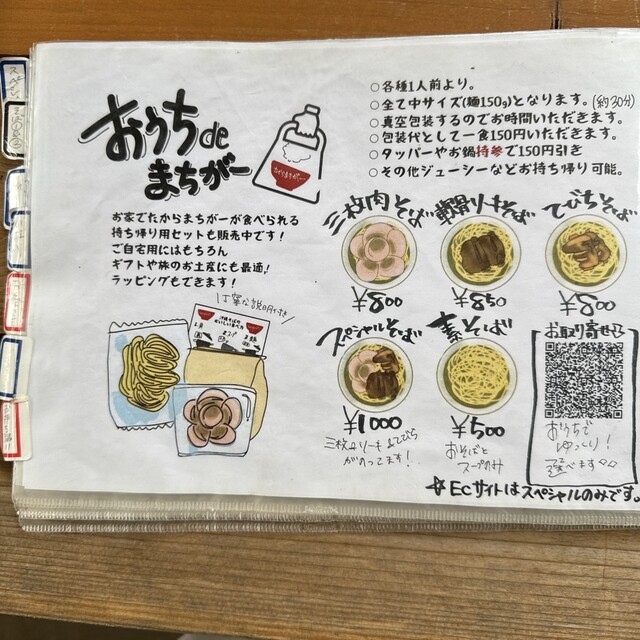 おうちde
まちがー
お家でたからまちがーが食べられる
持ち帰り用セットも販売中です！
ご自宅用にはもちろん
ギフトや旅のお土産にも最適！
ラッピングもできます！
○各種1人前より。
○全て中サイズ(麺150g)となります。
○真空包装するのでお時間いただきます。(約30分)
○包装代として一食150円いただきます。
○タッパーやお鍋持参で150円引き
○その他ジューシーなどお持ち帰り可能。
三枚肉そば
¥800
軟骨ソーキそば
¥850
てびちそば
¥800
スペシャルそば
¥1000
三枚肉ソーキ&てびち
がのってます！
素そば
¥500
おそばと
スープのみ
お取り寄せ
おうちで
ゆっくり！
選べます
☆ECサイトはスペシャルのみです。